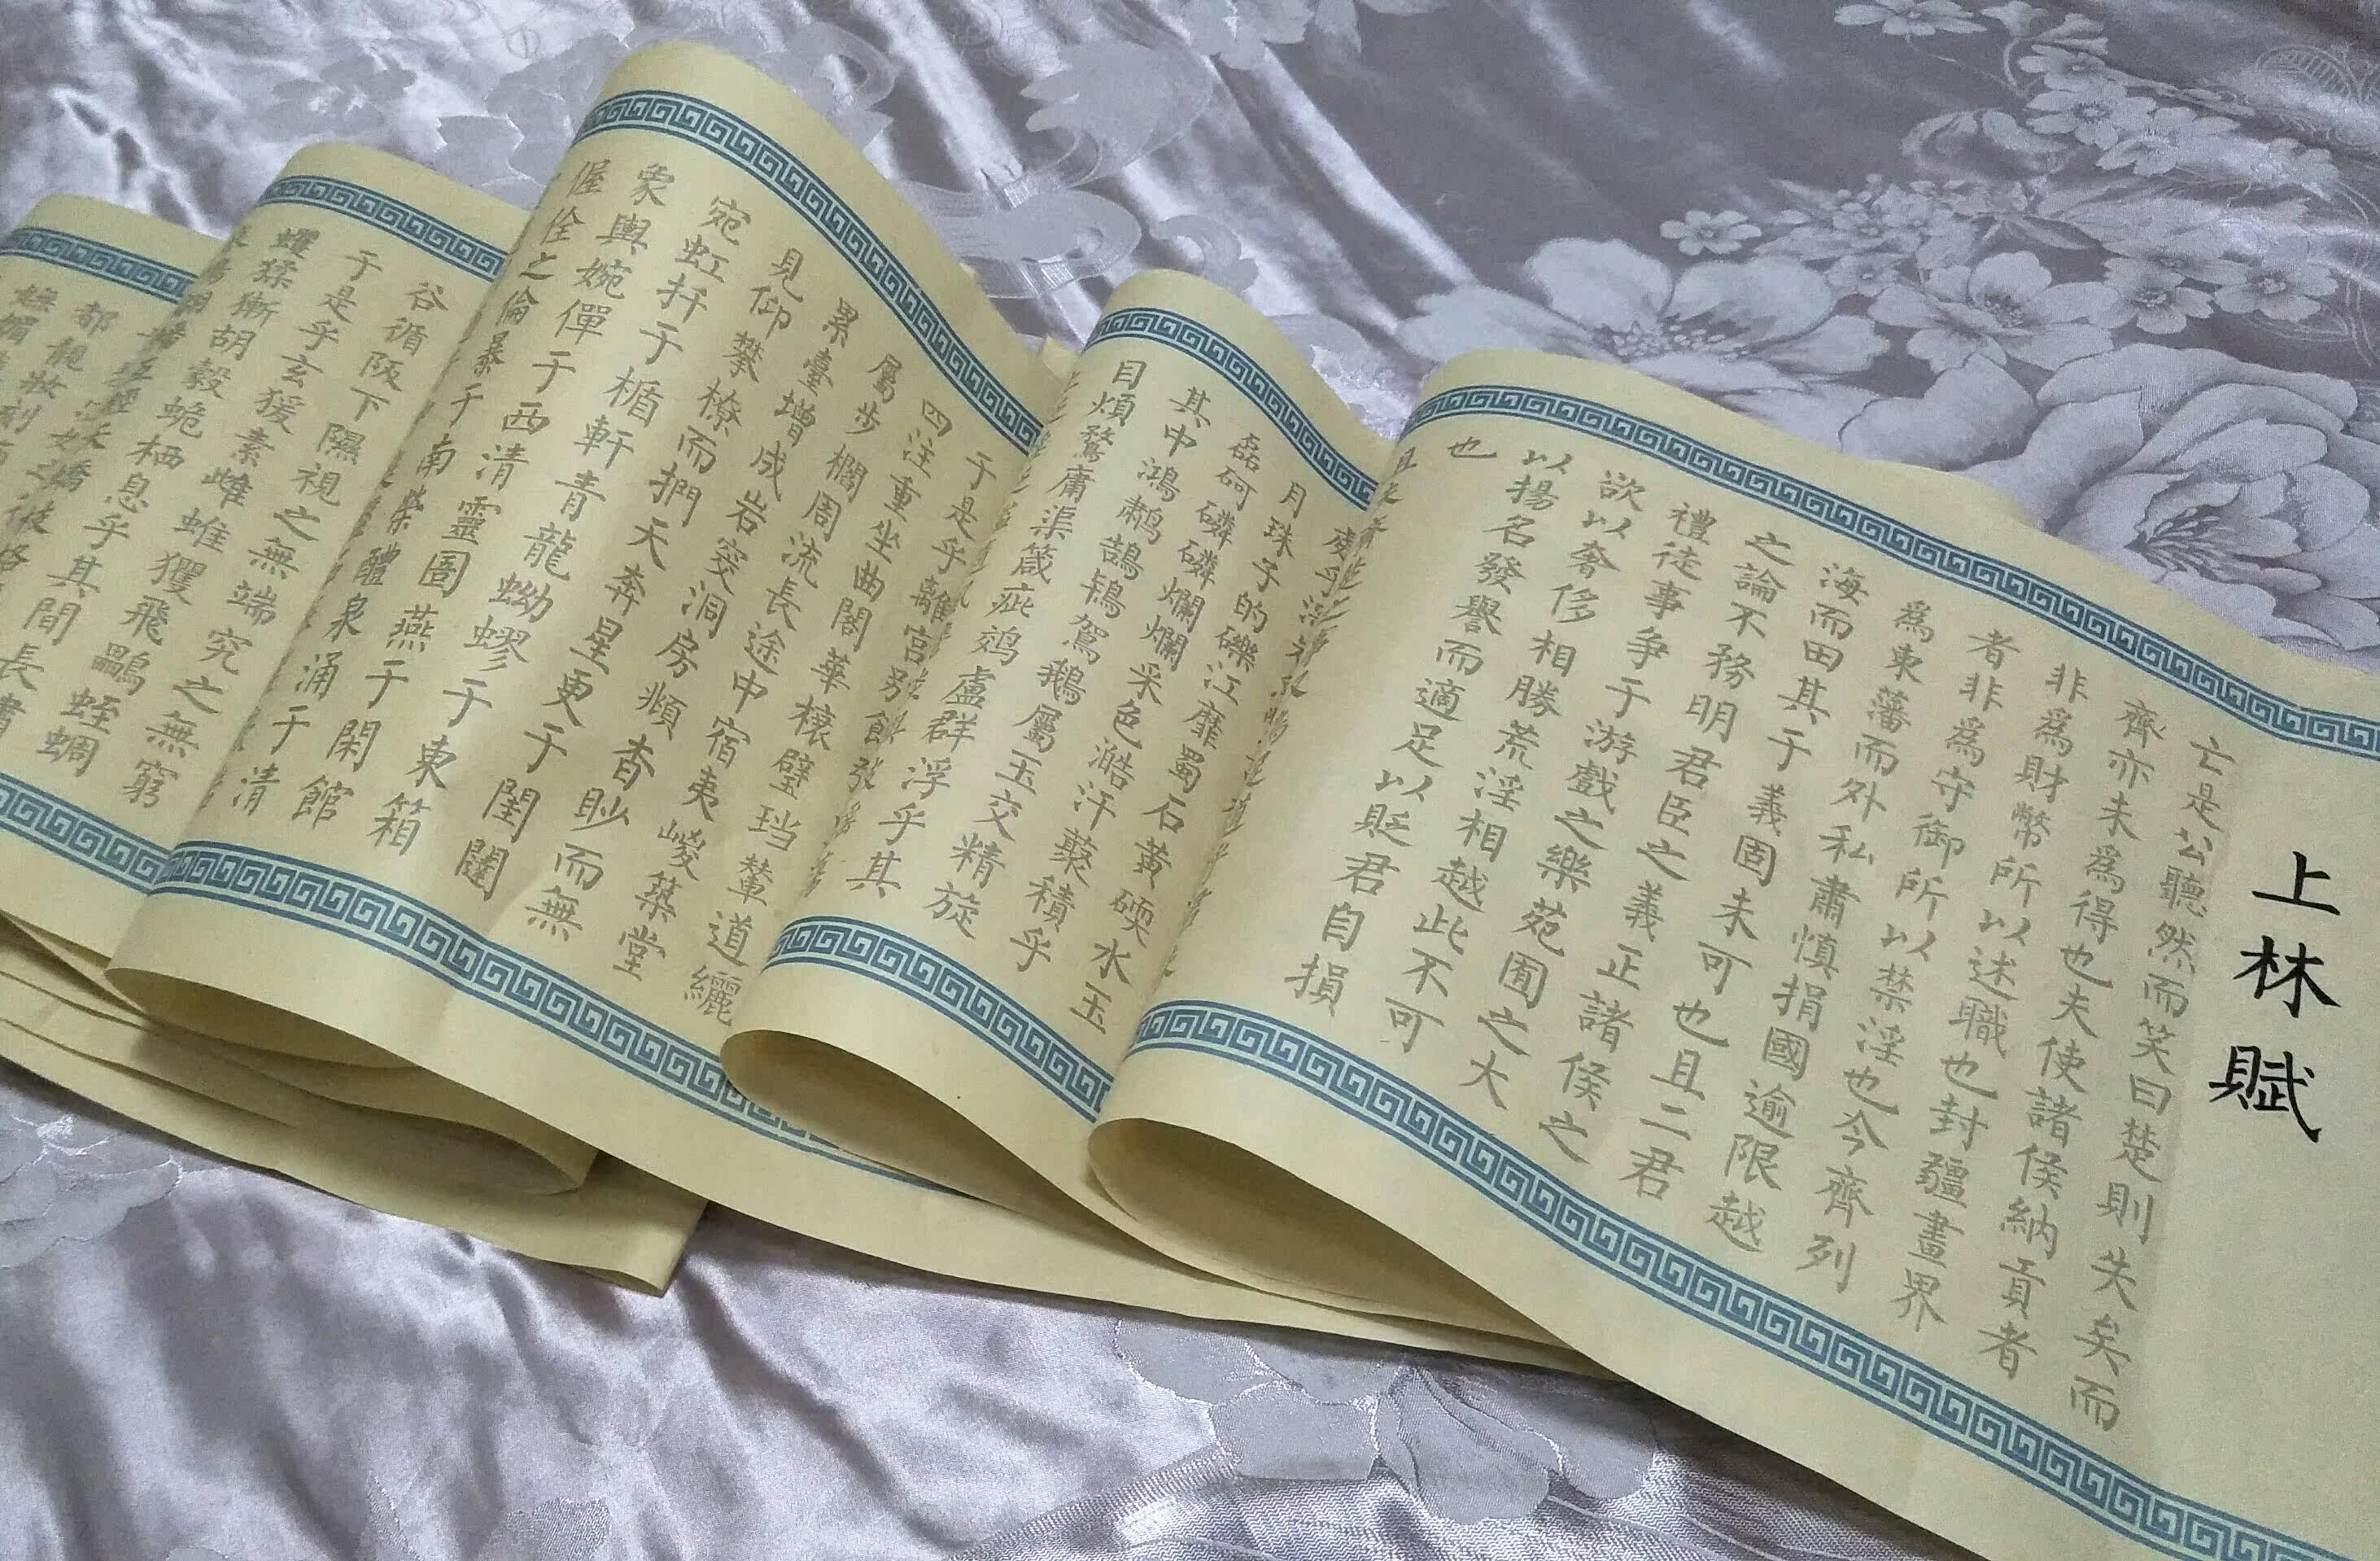 上林賦
亡是公聽然而笑曰楚則失矣而
齊亦未為得也夫使諸侯納貢者
非為財幣所以述職也封疆畫界
者非為守御所以禁淫也今齊列
為東藩而外私肅慎捐國逾限越
海而田其于義固未可也且二君
之論不務明君臣之義正諸侯之
禮徒事争于游戲之樂苑囿之大
欲以奢侈相勝荒淫相越此不可
以揚名發譽而適足以貶君自損
也
月珠子的礫江靡蜀石黃碝水玉
磊砢磷磷爛爛采色澔汗藂積乎
其中鴻鷫鵠鴇鴐鵝屬玉交精旋
目煩鶩庸渠箴疵鵁盧群浮乎其
于是乎離宮别館
四注重坐曲閣華榱璧珰輦道纚
屬步櫩周流長途中宿夷嵕築堂
累臺增成岩窔洞房頫杳眇而無
見仰攀橑而捫天奔星更于閨闥
宛虹扦于楯軒青龍蚴蟉于東箱
象輿婉僤于西清靈圄燕于閑館
偓佺之倫暴于南榮醴泉涌于清
谷循阪下隰視之無端究之無窮
于是乎玄猨素雌蜼玃飛鸓蛭蜩
蠷猱獑胡縠蛫栖息乎其間長嘯